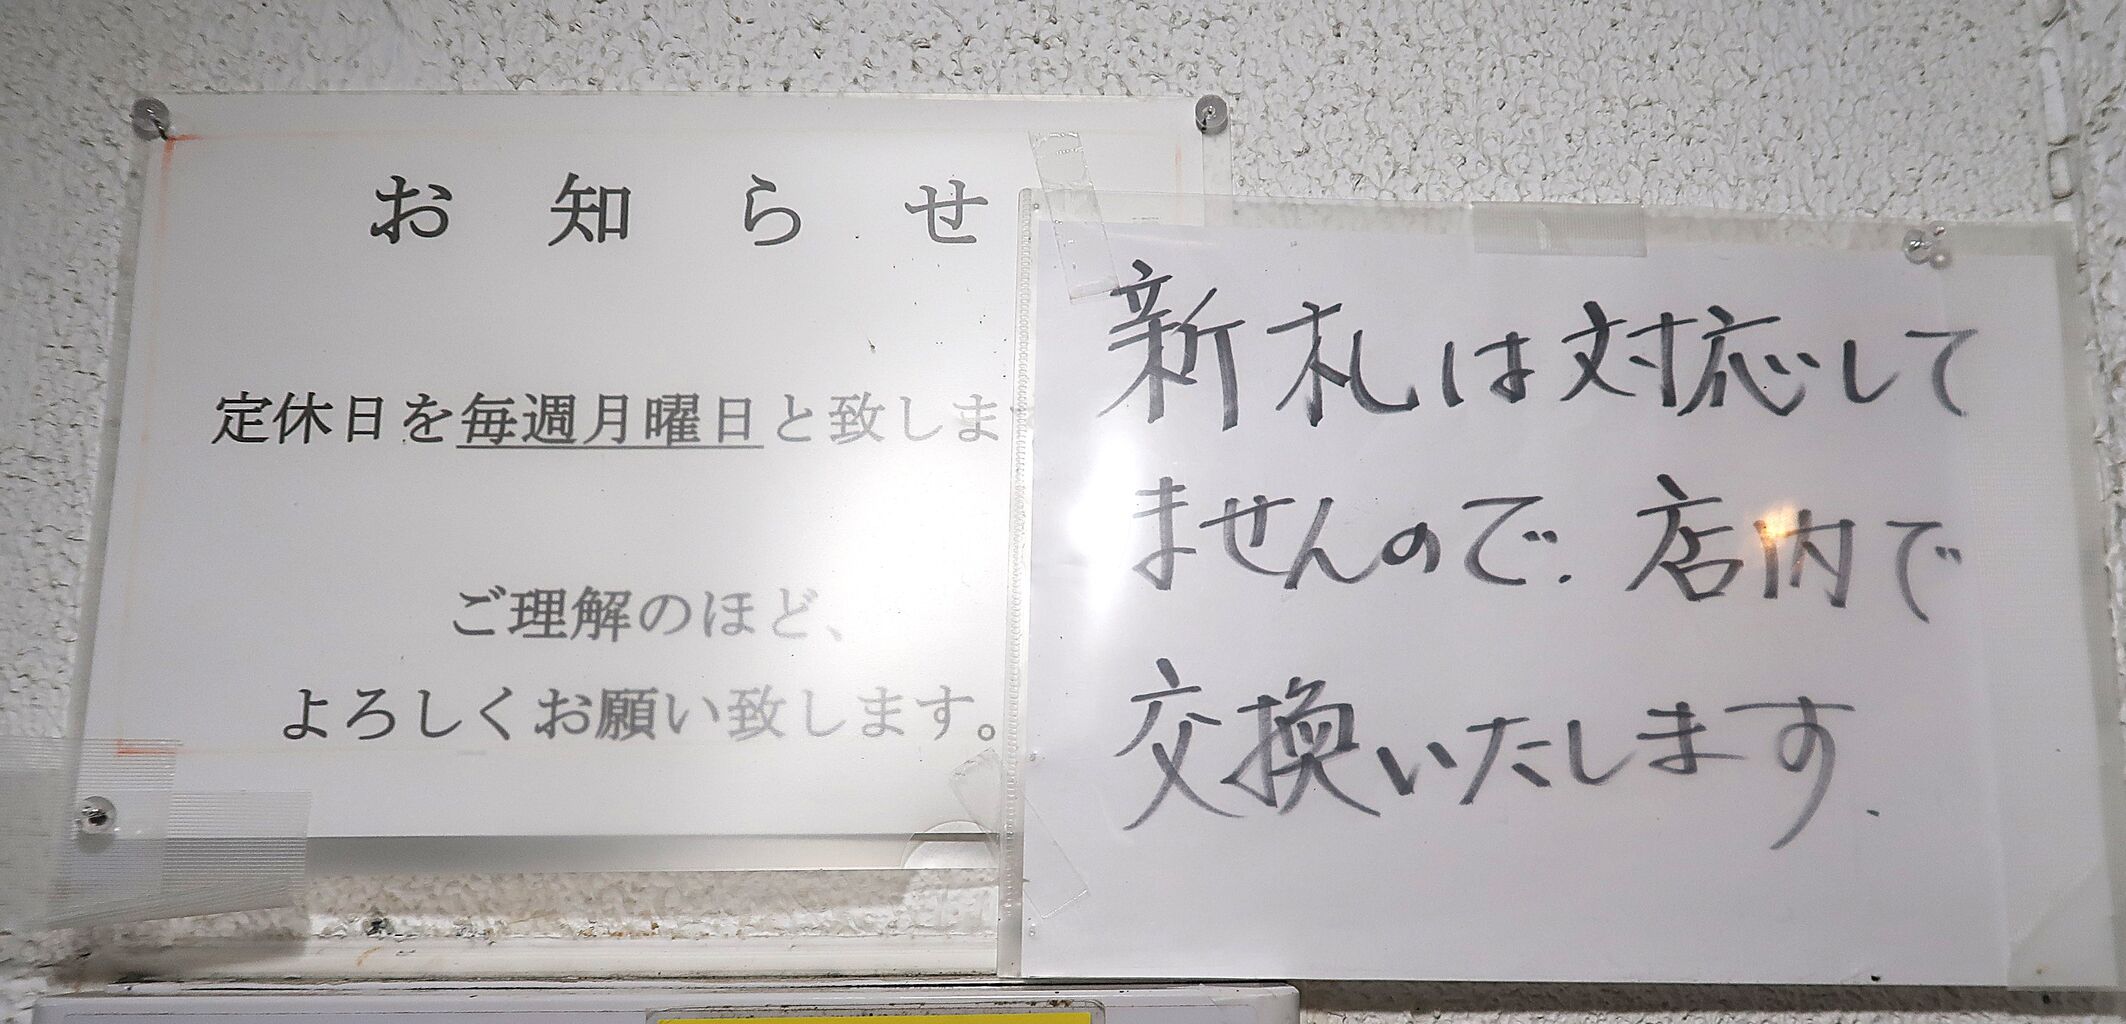 お知らせ
定休日を毎週月曜日と致しま
ご理解のほど、
よろしくお願い致します。
新札は対応して
ませんので.店内で
交換いたします.